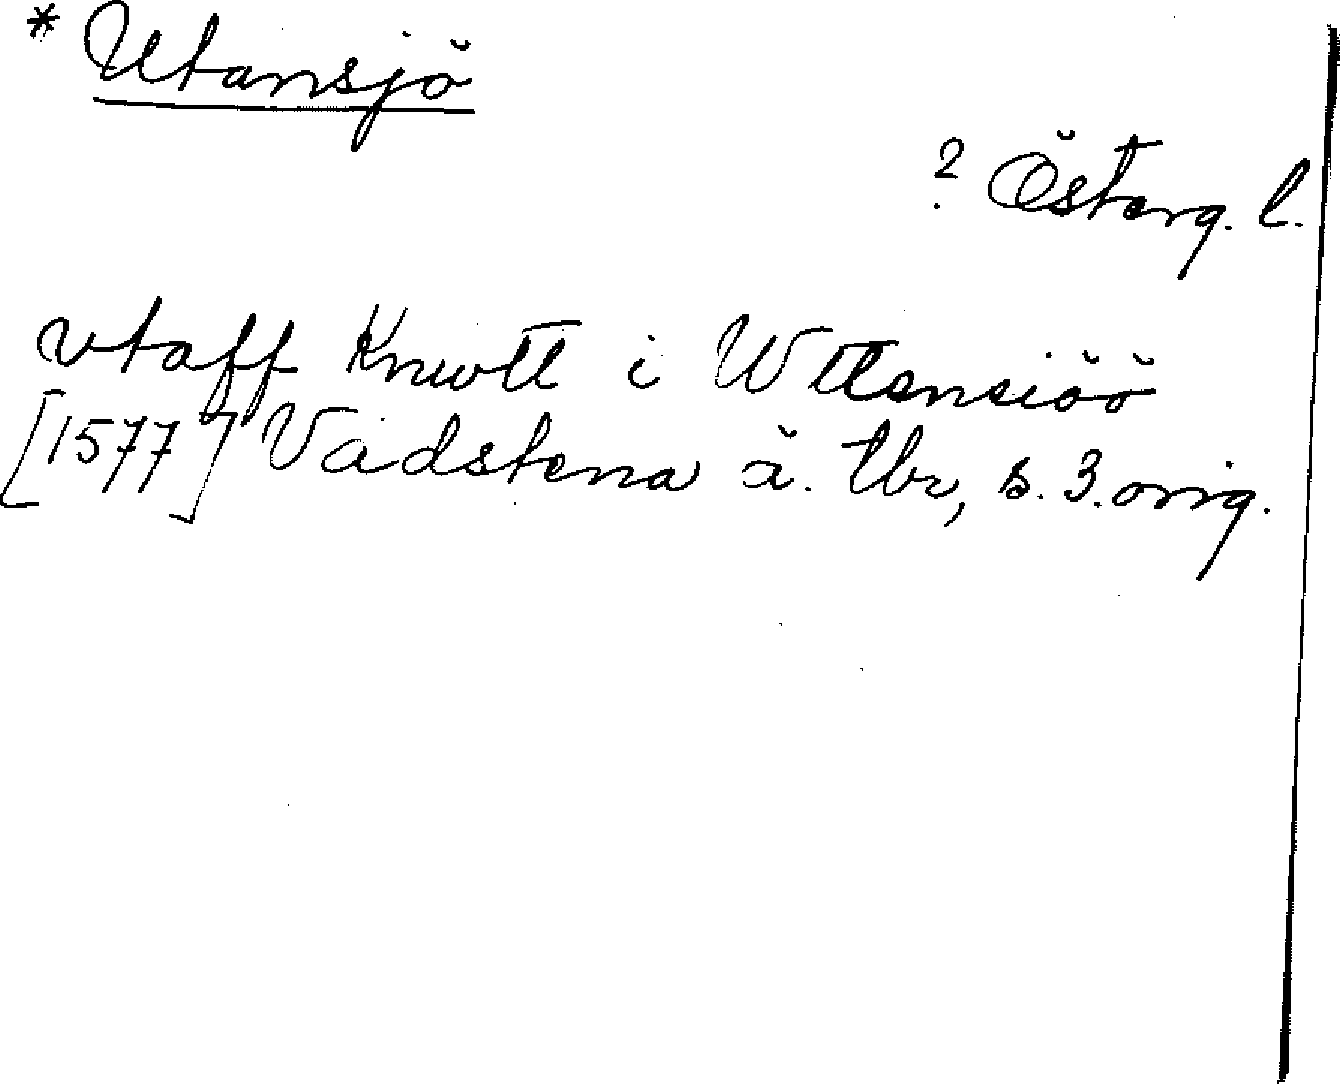 * Utansjö
? Österg. l.
vtaff Knwtt i Wttensiöö
[1577] Vadstena ä. tbr, s. 3. orig.